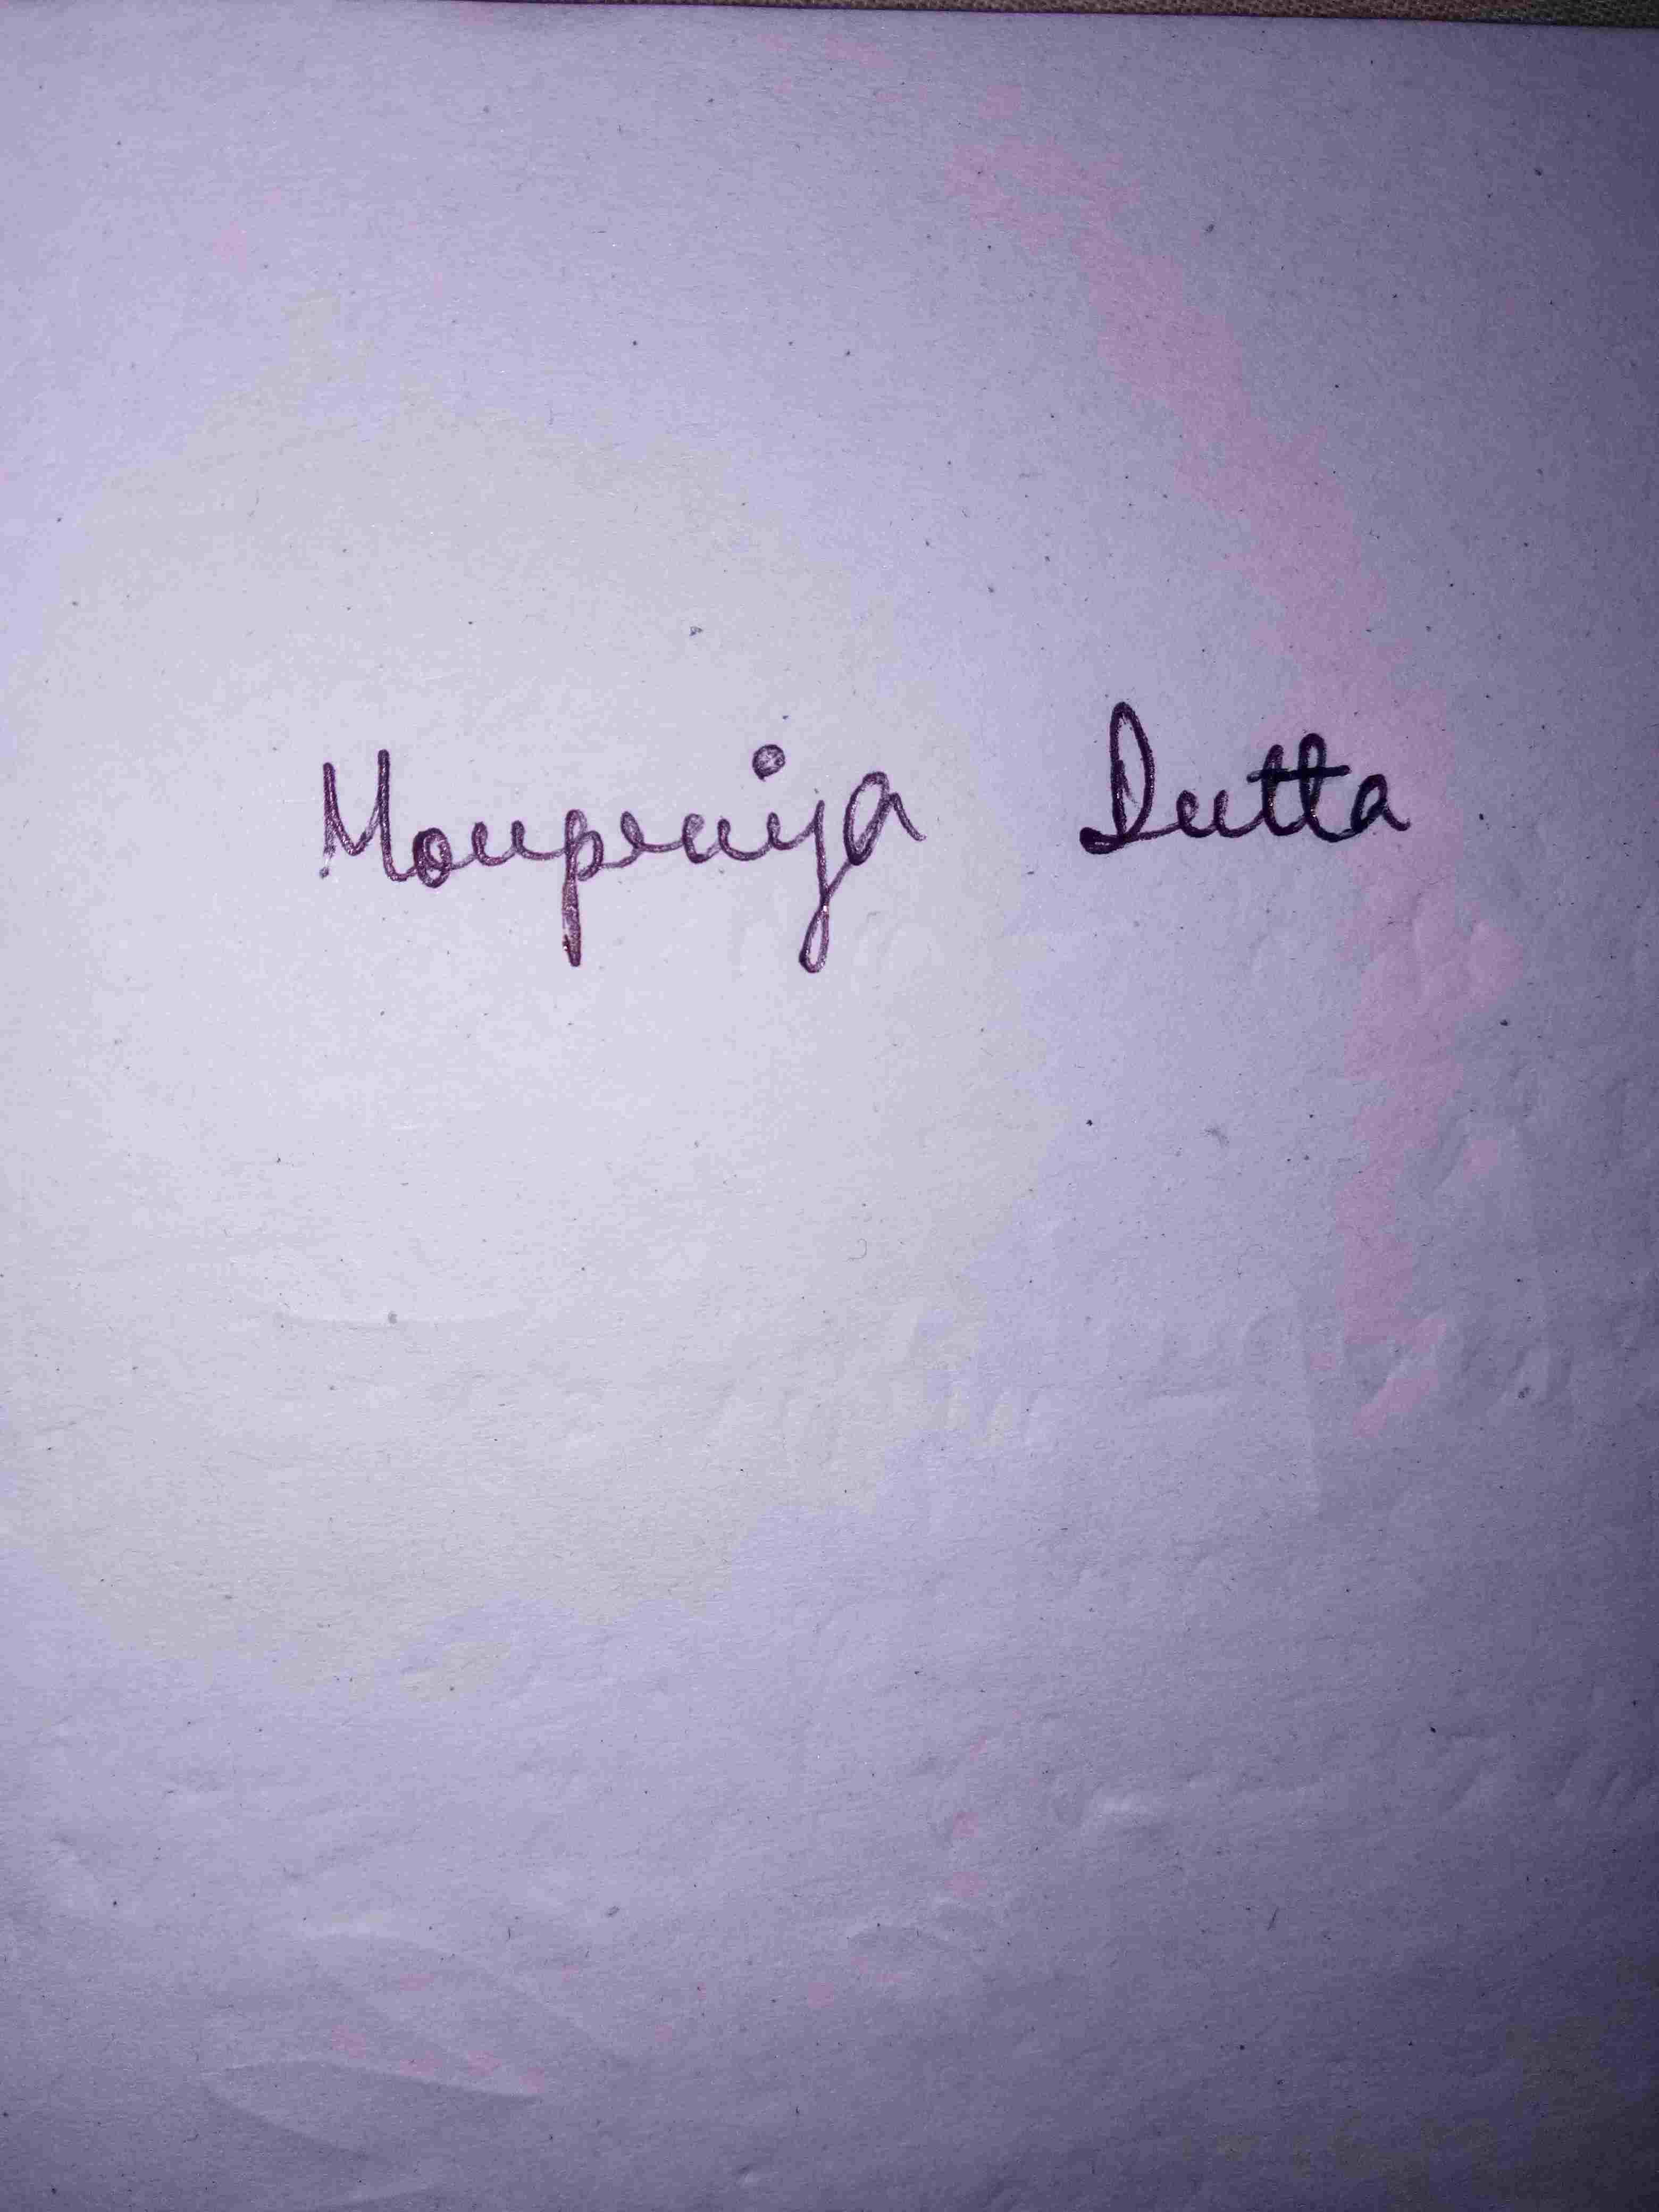 Moupriya Dutta